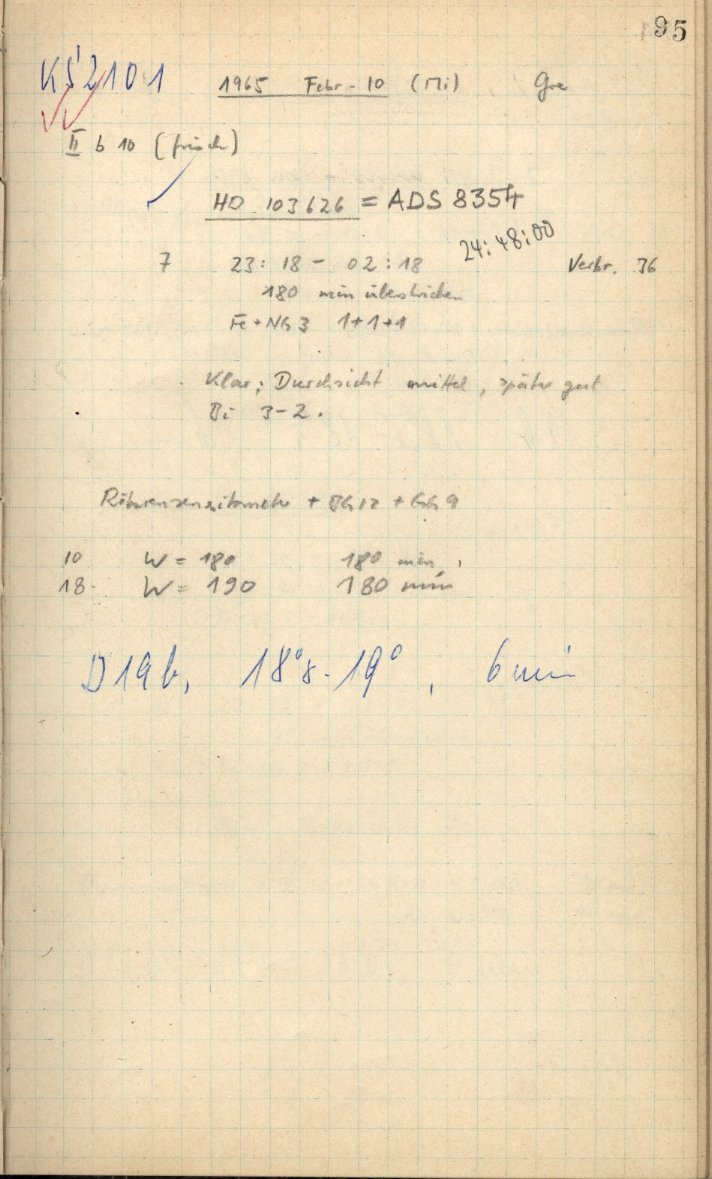 95
KŚ2101 1965 Febr-10 (Mi) Gre
II b 10 (frisch)
HD 103626 = ADS 8354
24:48:00
7 23:18 - 02:18 Verbr. 36
180 min überstrichen
Fe+NG3 1+1+1
Klar; Durchsicht mittel, später gut
Bi 3-2.
Röhrensensitometer + BG12 + GG9
10 W = 180 180 min
18. W = 190 180 min
D19b, 18°8-19°, 6 min